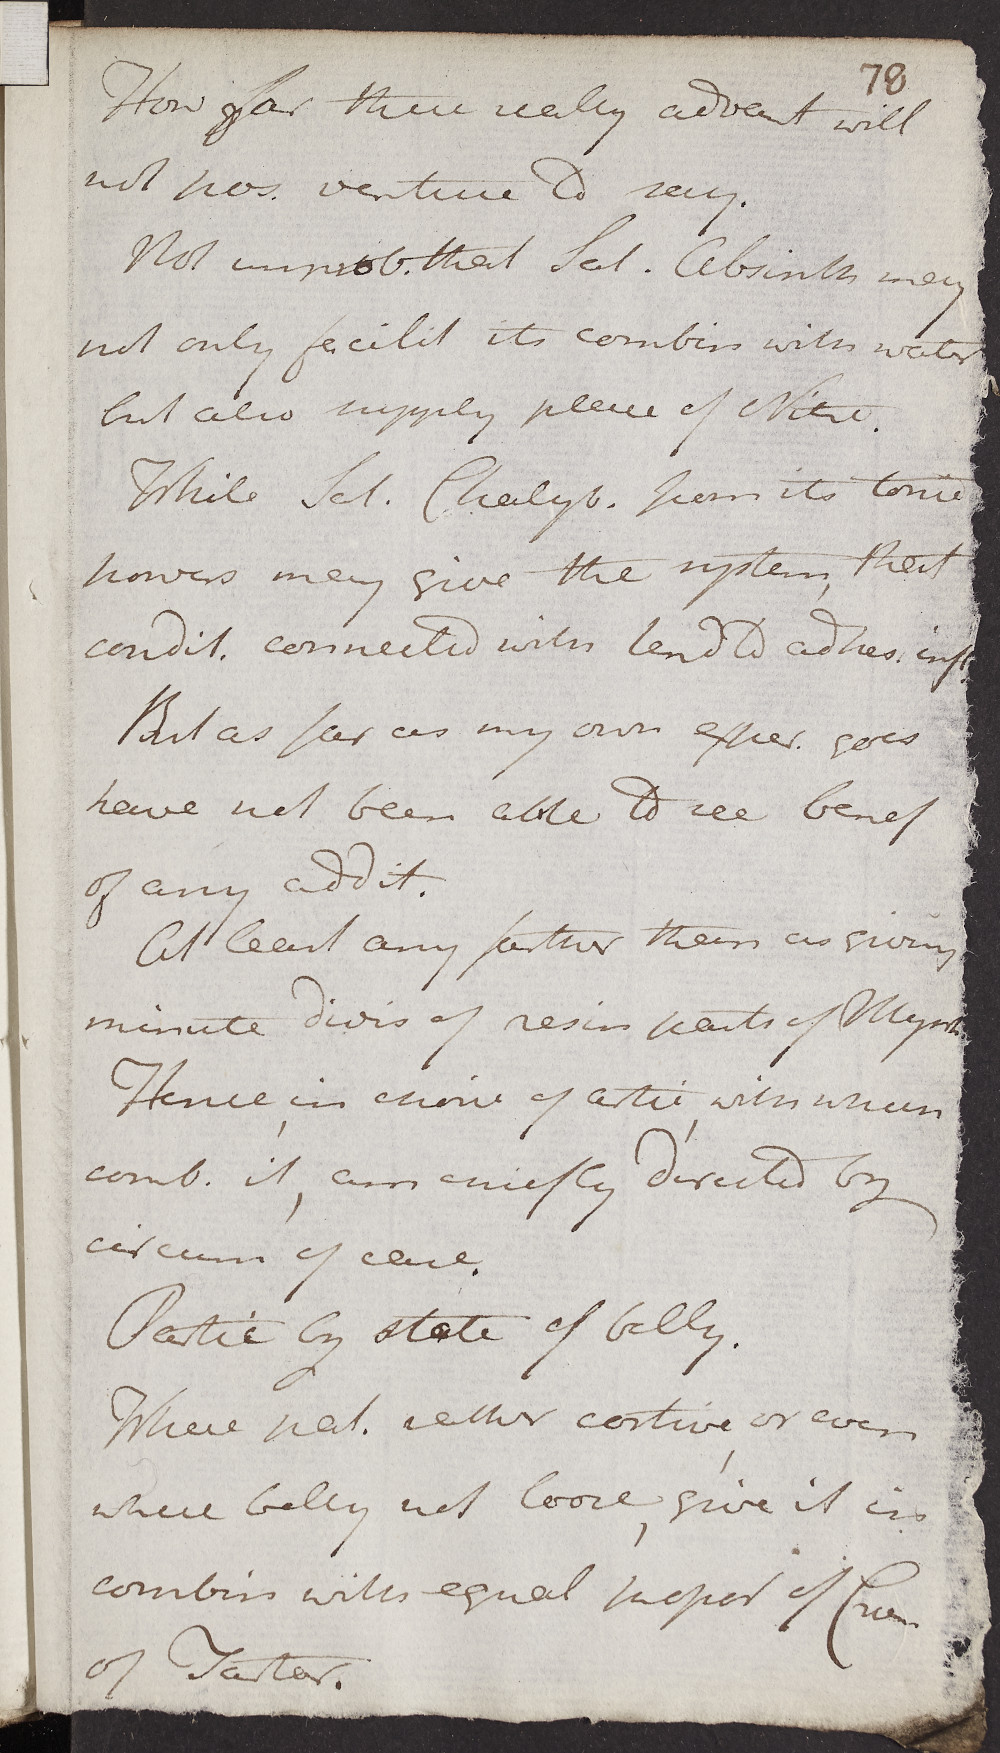 78
How far these really advant will
not pos. venture to say.
Not improb. that Sal. Absinth may
not only facilit its combin with water
but also supply place of Nitre.
While Sal. Chalyb. from its tonic
powers may give the system, that
condit. connected with tend to adhes. infl.
But as far as my own exper. goes
have not been able to see benef
of any addit.
At least any farther than as giving
minute divis of resin parts of Myrrh
Hence, in choice of artic, with whem
comb. it, am chiefly directed by
circum of case.
Partic by state of belly.
Where pat. rather costive, or even
where belly not loose, give it in
combin with equal propor of Crem
of Tartar.